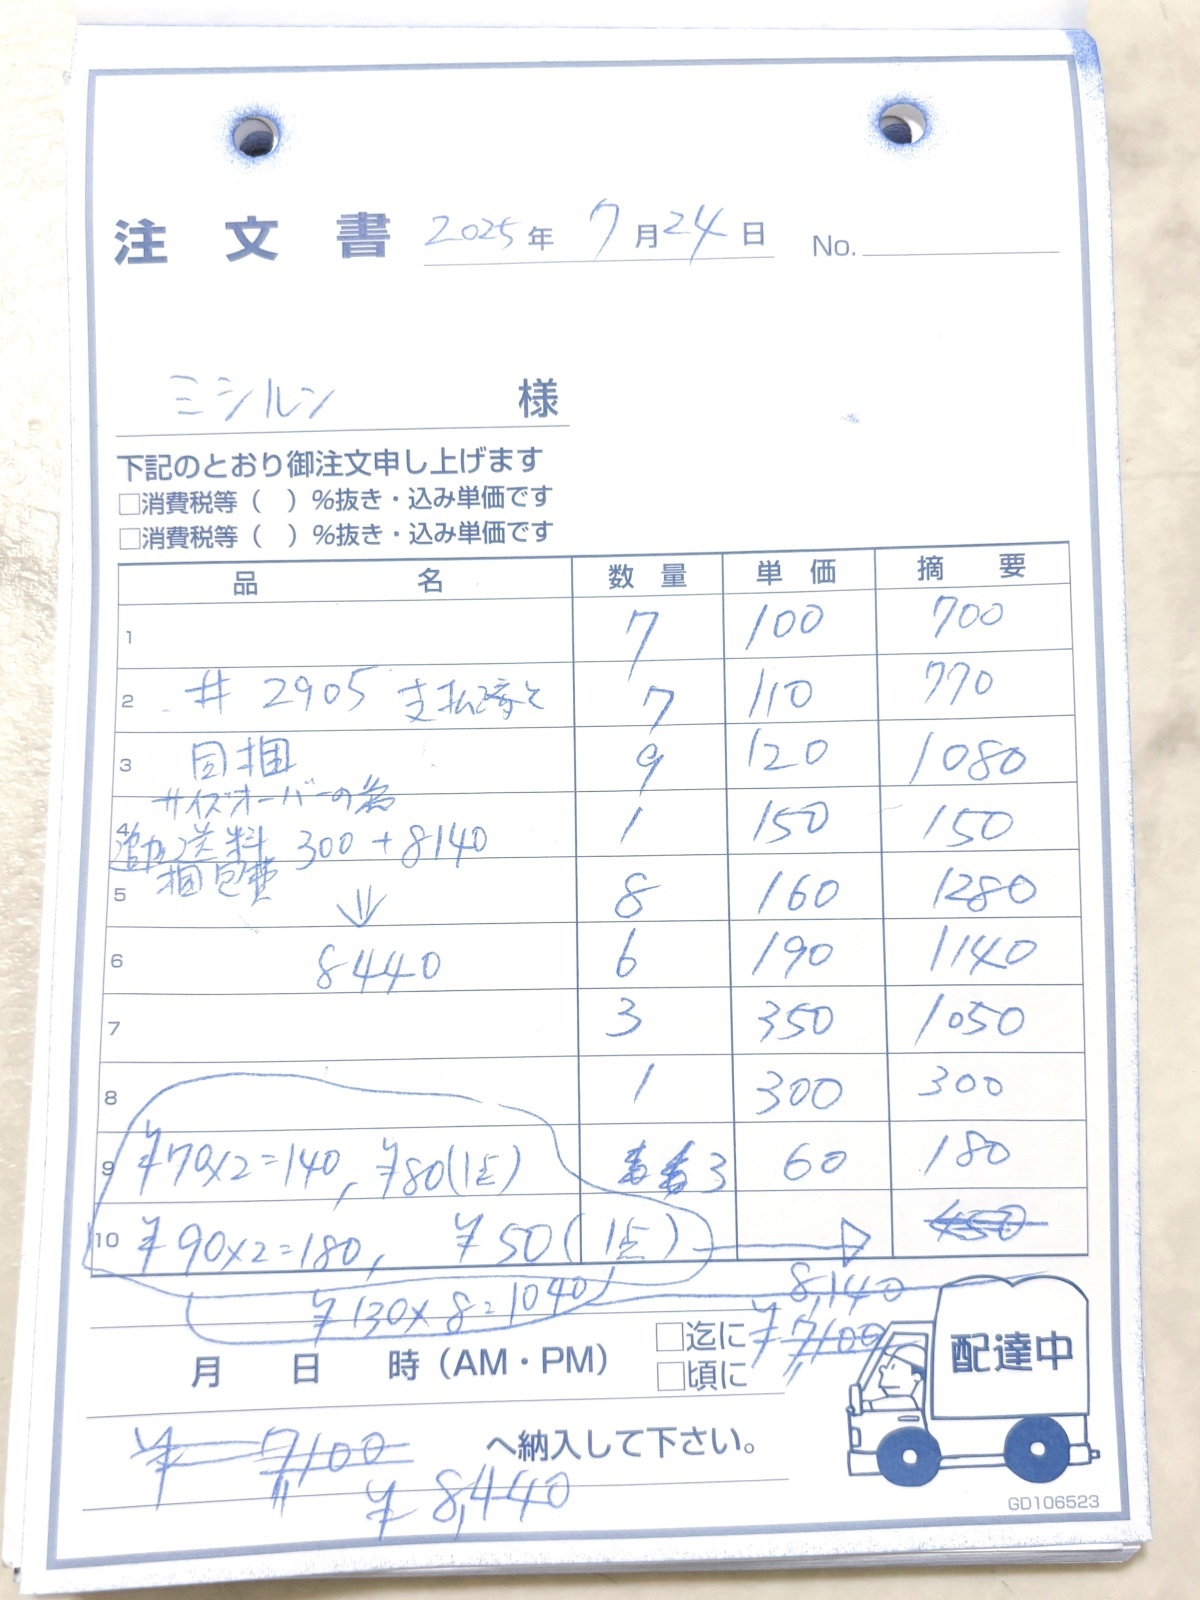 注文書 2025年 7月24日 No.
ミシルン 様
下記のとおり御注文申し上げます
□消費税等（ ）％抜き・込み単価です
□消費税等（ ）％抜き・込み単価です
品名 数量 単価 摘要
1 7 100 700
2 # 2905 支払済と 7 110 770
3 同梱 9 120 1080
サイズオーバーの為
4 追加送料 300+8140 1 150 150
梱包費
5 8 160 1280
↓
6 8440 6 190 1140
7 3 350 1050
8 1 300 300
9 ¥70×2=140, ¥80(1点) 3 60 180
10 ¥90×2=180, ¥50(1点) 450
¥130×8=1040 8,140
□迄に ¥7100
月 日 時（AM・PM）
□頃に
配達中
¥7100 へ納入して下さい。
¥8,440
GD106523